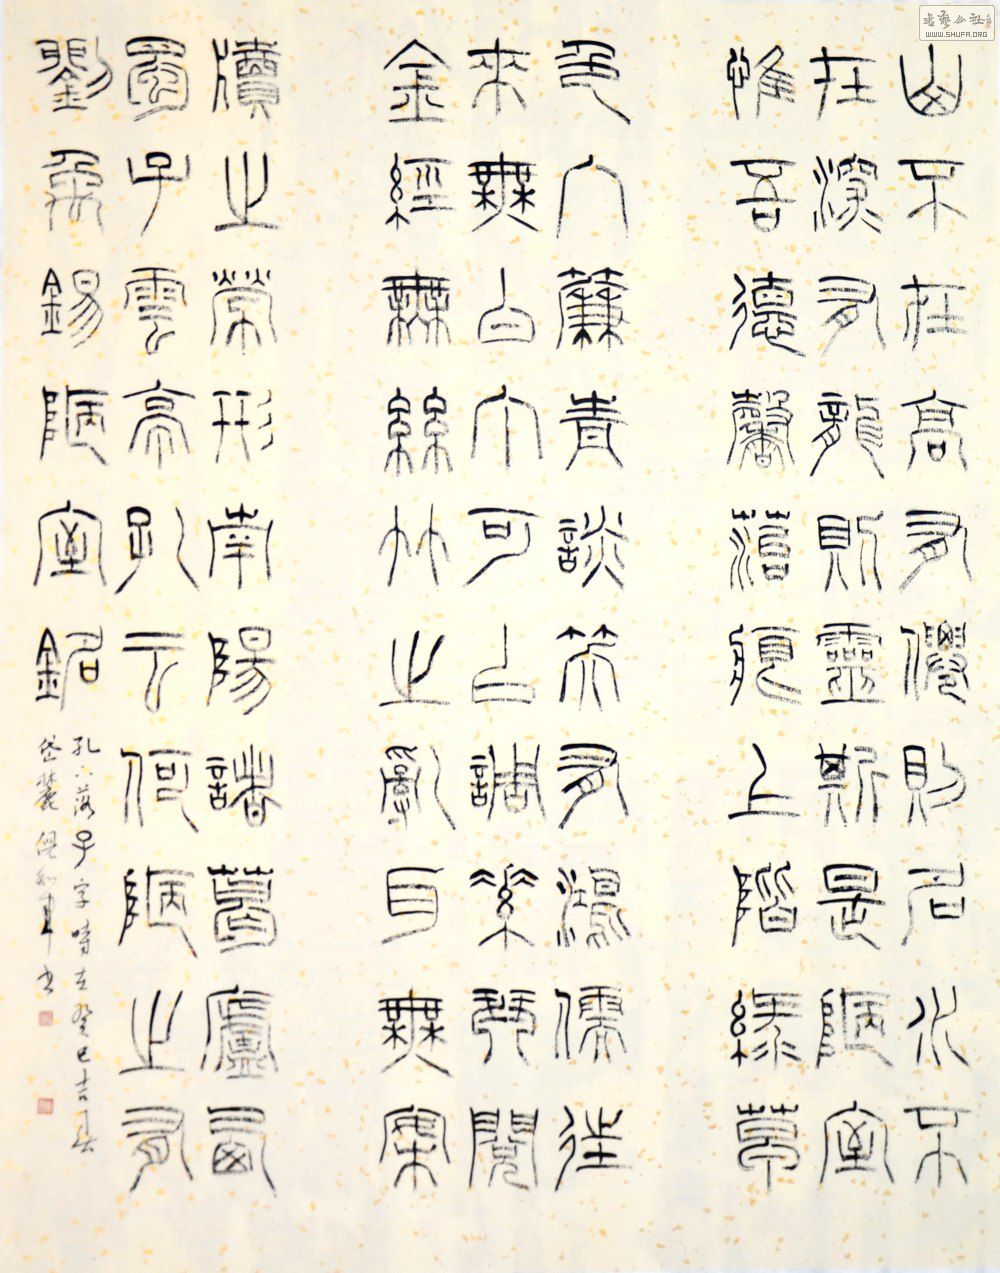 山不在高有僊則名水不
在深有龍則靈斯是陋室
惟吾德馨菭痕上階綠草
色入簾青談笑有鴻儒往
來無白丁可以調素琴閱
金經無絲竹之亂耳無案
牘之勞形南陽諸葛廬西
蜀子雲亭孔云何陋之有
劉禹錫陋室銘
孔下落子字時在癸巳吉月於
岱麓倪和軍書
書藝公社
WWW.SHUFA.ORG